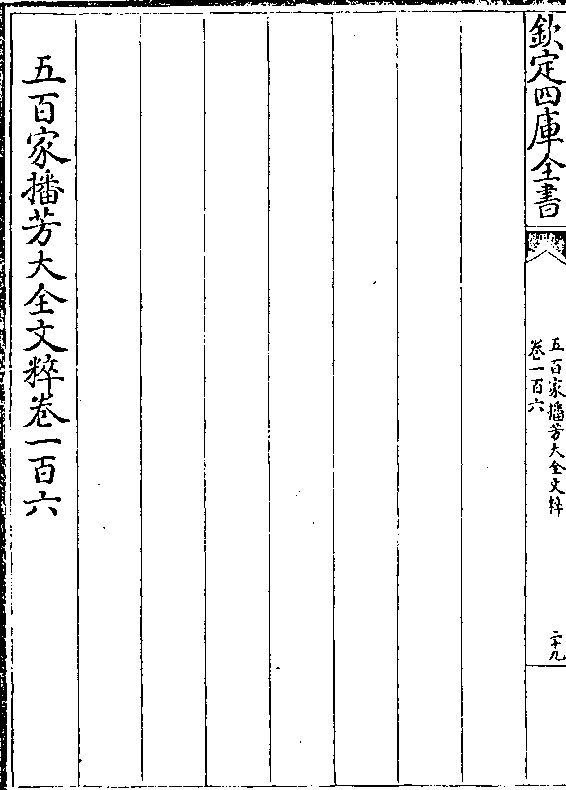 欽定四庫全書
五百家播芳大全文粹
卷一百六
二十九
五百家播芳大全文粹卷一百六